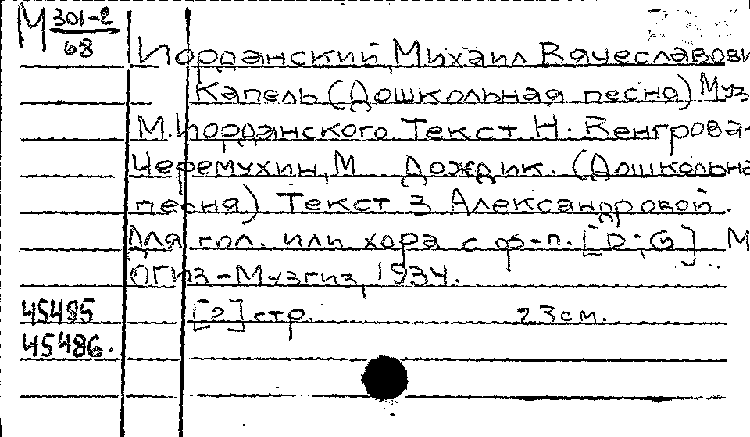 М 301-2
68
Иорданский, Михаил Вячеславови
Капель (Дошкольная песня) Муз
М. Иорданского. Текст Н. Венгрова-
Черемухин, М. Дождик. (Дошкольна
песня) Текст З Александровой.
Для гол. или хора с ф-п. [D; G] М
ОГИЗ-Музгиз, 1934.
45485 [2] стр. 23 см.
45486.